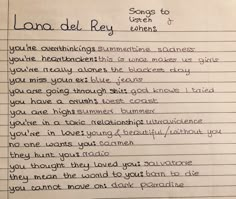 Lana del Rey
Songs to
listen
when:
you're overthinking: summertime sadness
you're heartbroken: this is what makes us girls
you're really alone: the blackest day
you miss your ex: blue jeans
you are going through shit: god knows i tried
you have a crush: west coast
you are high: summer bummer
you're in a toxic relationship: ultraviolence
you're in love: young & beautiful / without you
no one wants you: carmen
they hunt you: radio
you thought they loved you: salvatore
they mean the world to you: born to die
you cannot move on: dark paradise